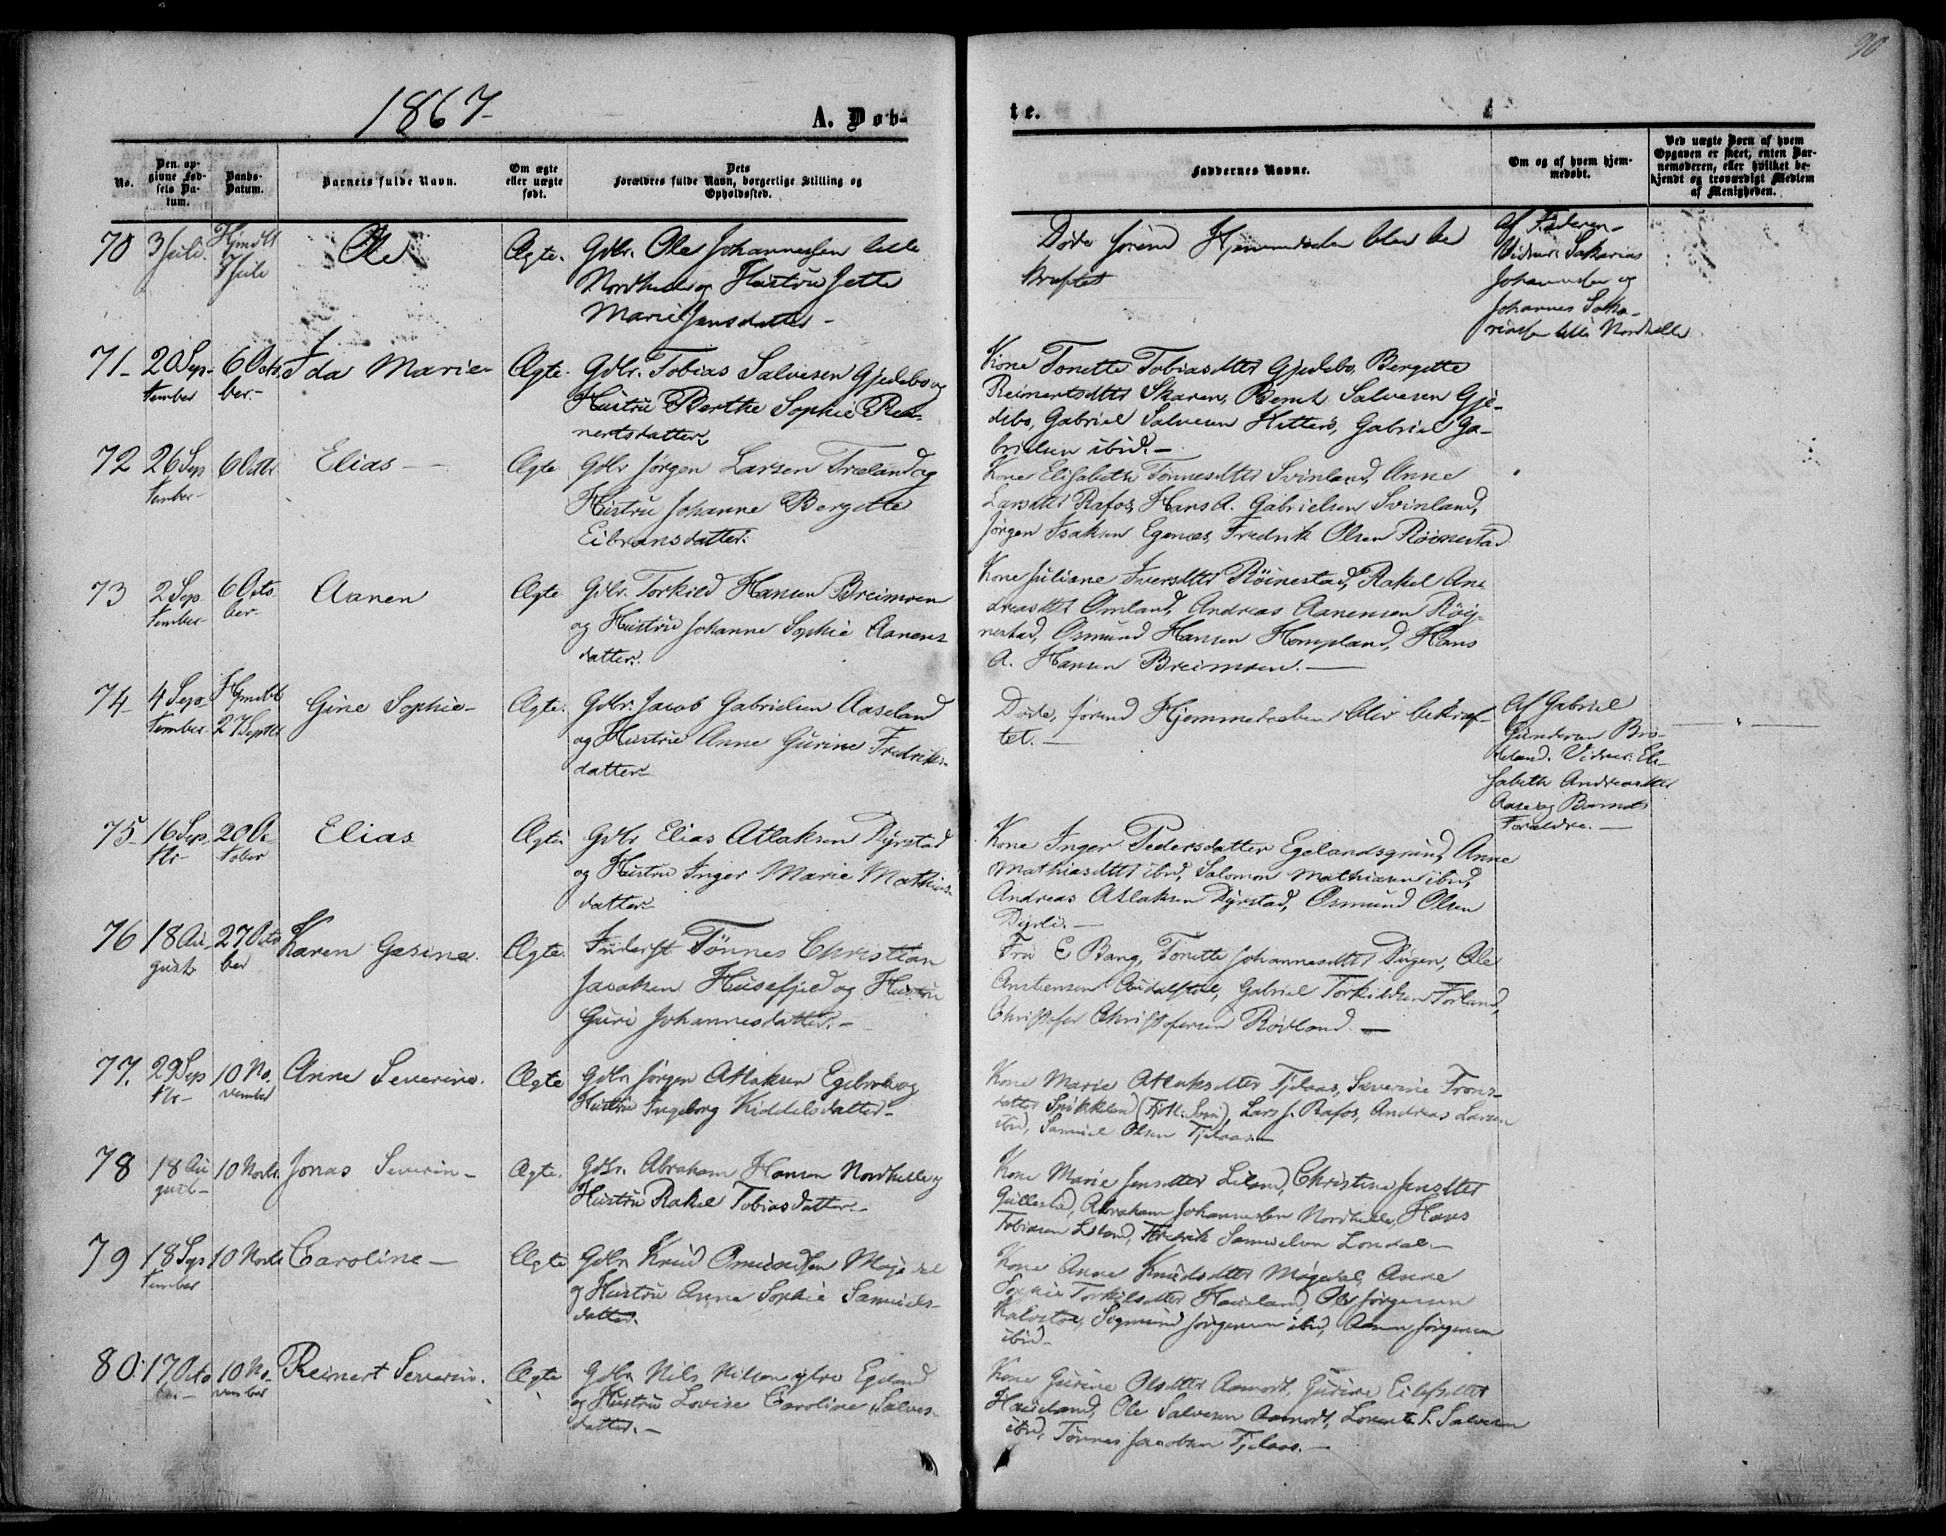 90
1867
A. Døb-
te.
No.
Den op-
givne Fød-
sels Da-
tum.
Daabs-
Datum.
Barnets fulde Navn.
Om ægte
eller uægte
født.
Dets
Forældres fulde Navn, borgerlige Stilling og
Opholdssted.
Faddernes Navne.
Om og af hvem hjem-
medøbt.
Ved uægte Børn af hvem
Opgaven er skeet, enten Bar-
nemoderen, eller hvilket be-
kjendt og troværdigt Medlem
af Menigheden.
70 3 Juli. Hjmdt Ole Ægte. Gdbr. Ole Johannessen lille
7 Juli Nordhelle og Hustru Jette
Marie Jensdatter -
Døde førend Hjemmedaaben blev be
kræftet
Af Faderen-
Vidner: Sakarias
Johannesen og
Johannes Saka-
riassen lille Nordhelle
71- 20 Sep- 6 Octo Ida Marie- Ægte. Gdbr. Tobias Salvesen Gjedebo og
tember ber.- Hustru Berthe Sophie Rei-
nertsdatter
Kone Tonette Tobiasdtter Gjedebo, Bergette
Reinertsdtter Skaren, Bernt Salvesen Gje-
debo, Gabriel Salvesen Hitterø, Gabriel Ga-
brielsen ibid.-
72 26 Sep 6 Octbr. Elias - Ægte Gdbr Jørgen Larsen Træland og
tember- Hustru Johanne Bergette
Eibransdatter.
Kone Elisabeth Tønnesdtter Svinland, Anne
Larsdtter Rafos, Hans A. Gabrielsen Svinland,
Jørgen Isaksen Egenæs, Fredrik Olsen Røinestad
73 2 Sep 6 Octo Aanen Ægte Gdbr. Torkild Hansen Breimoen
tember- ber- og Hustru Johanne Sophie Aanens
datter.
Kone Juliane Iversdtter Röinestad, Rakel An-
dreasdtter Omland, Andreas Aanensen Røy-
nestad, Osmund Hansen Hompland, Hans
A. Hansen Breimoen.-
74- 4 Sep- Hjmdbt Gine Sophie- Ægte. Gdbr. Jacob Gabrielsen Aaseland
tember 27 Septbr og Hustru Anne Gurine Fredriks-
datter-
Døde, førend Hjemmedaaben blev bekræf-
tet.-
Af Gabriel
Gundersen Bro-
Vidner: Eli-
sabeth Andreasdtter
Aase og Barnets
Forældre.-
75- 16 Sep. 20 Oc- Elias Ægte Gdbr Elias Atlaksen Dyrstad
tbr- tober og Hustru Inger Marie Mathias-
datter-
Kone Inger Pedersdatter Egelandsgrund, Anne
Mathiasdtter ibid, Salomon Mathiasen ibid,
Andreas Atlaksen Dyrstad, Osmund Olsen
Dyrli.-
76 18 Au- 27 Octo Karen Gesine. Ægte. Inderst Tønnes Christian
gust- ber Jacobsen Husefjeld og Hustru
Guri Johannesdatter.-
Fru E Bang, Tonette Johannesdtter Dugen, Ole
Gabriel Torkildsen Førland,
Christofer Christofersen Rødland.-
77. 29 Sep 10 No. Anne Severine. Ægte Gdbr Jørgen Atlaksen Egebrok og
tbr- vember Hustru Ingeborg Kiddelsdatter-
Kone Marie Atlaksdtter Tjelaas, Severine Frons-
datter Lars J. Rafos, Andreas Larsen
ibid, Samuel Olsen Tjelaas.-
78 18 Au 10 Novbr. Jonas Severin- Ægte. Gdbr. Abraham Hansen Nordhelle og
gust- Hustru Rakel Tobiasdatter-
Kone Marie Jensdtter Leland, Christine Jensdtter
Gullestad, Abraham Johannesen Nordhelle, Hans
Tobiasen Leland, Fredrik Samuelsen Londal.-
79 18 Sep 10 Novbr Caroline- Ægte Gdbr Knud Omundsen Møgedal
tember og Hustru Anne Sophie Samuels-
datter.
Kone Anne Knudsdtter Møgedal, Anne
Sophie Torkilsdtter Haueland, Ole Jørgensen
Sigmund Jørgensen ibid, Aanen Jørgensen
ibid-
80. 17 Octo 10 No- Reinert Severin. Ægte Gdbr Nils Nilsen ytre Egeland
ber- vember og Hustru Lovise Caroline Salves-
datter.-
Kone Gurine Olsdtter Aamodt, Gurine Eilefsdtter
Haueland, Ole Salvesen Aamodt, Lorents S. Salvesen
ibid, Tønnes Jacobsen Tjelaas.-